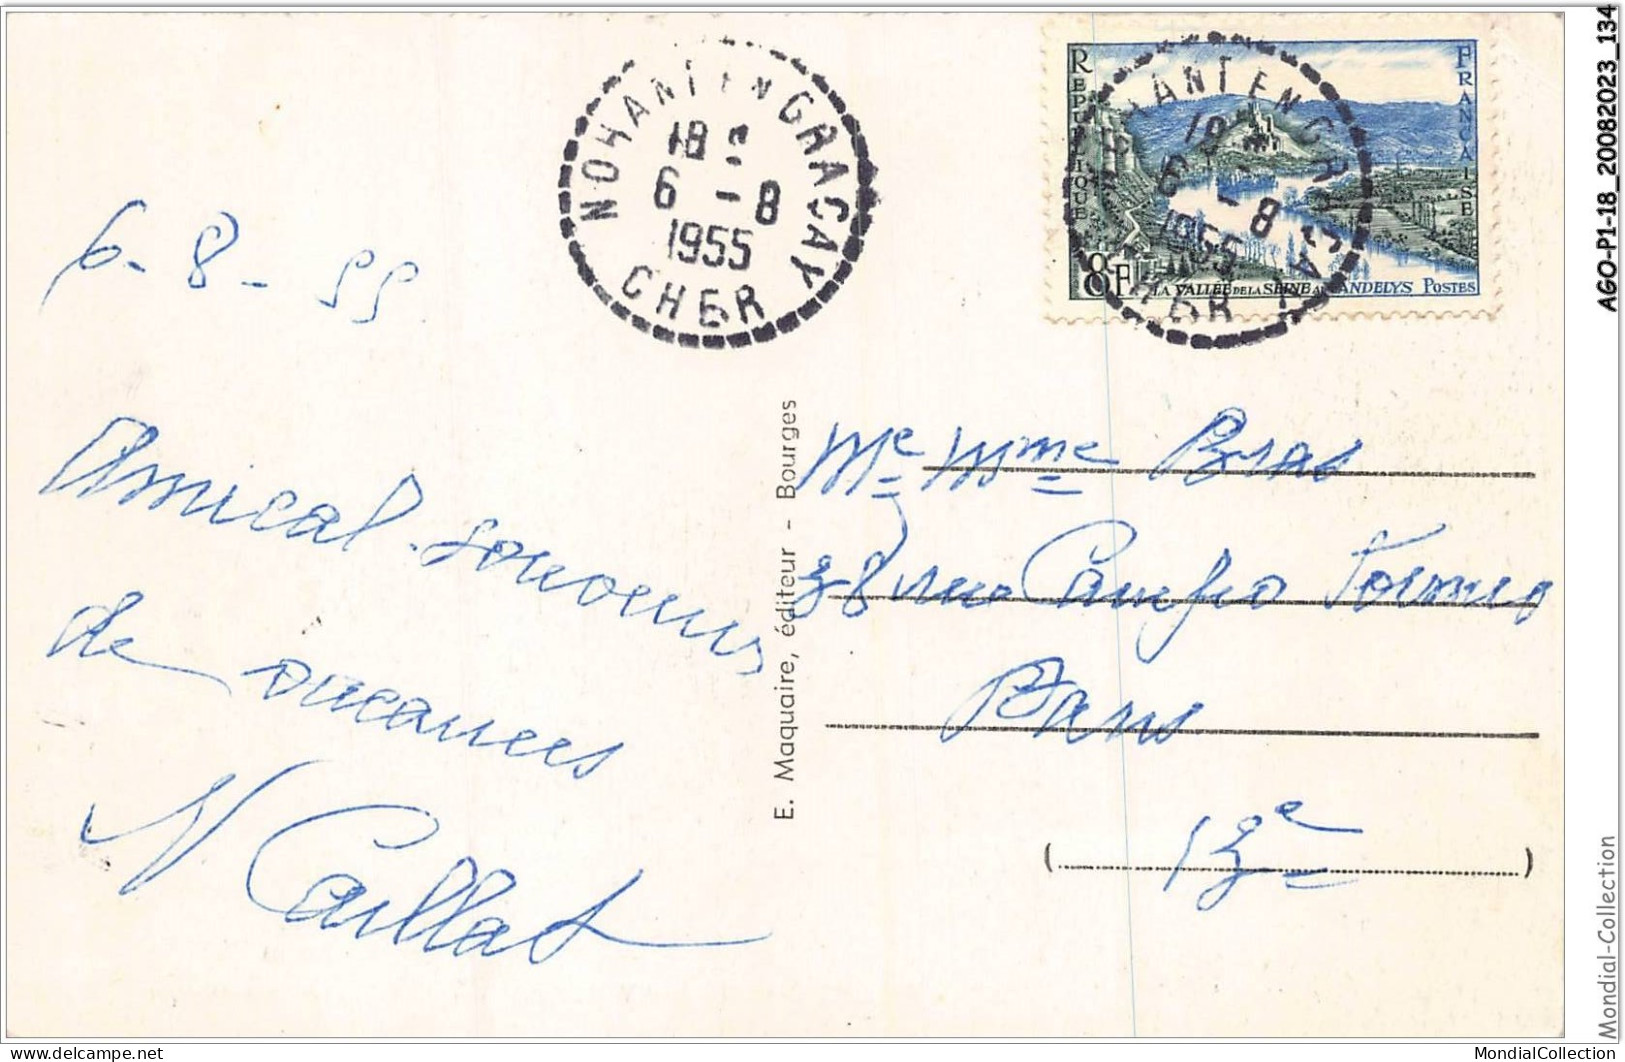 NOHANT EN GRAÇAY
18
6 - 8
1955
CHER
REPUBLIQUE
FRANÇAISE
8F
LA VALLÉE DE LA SEINE AUX ANDELYS POSTES
6-8-55
Amical souvenir
de vacances
N Caillat
E. Maquaire, éditeur - Bourges
Me Mme Bras
38 rue Campo Formio
Paris
13e
AGO-P1-18_20082023_134
Mondial-Collection
MondialCollection